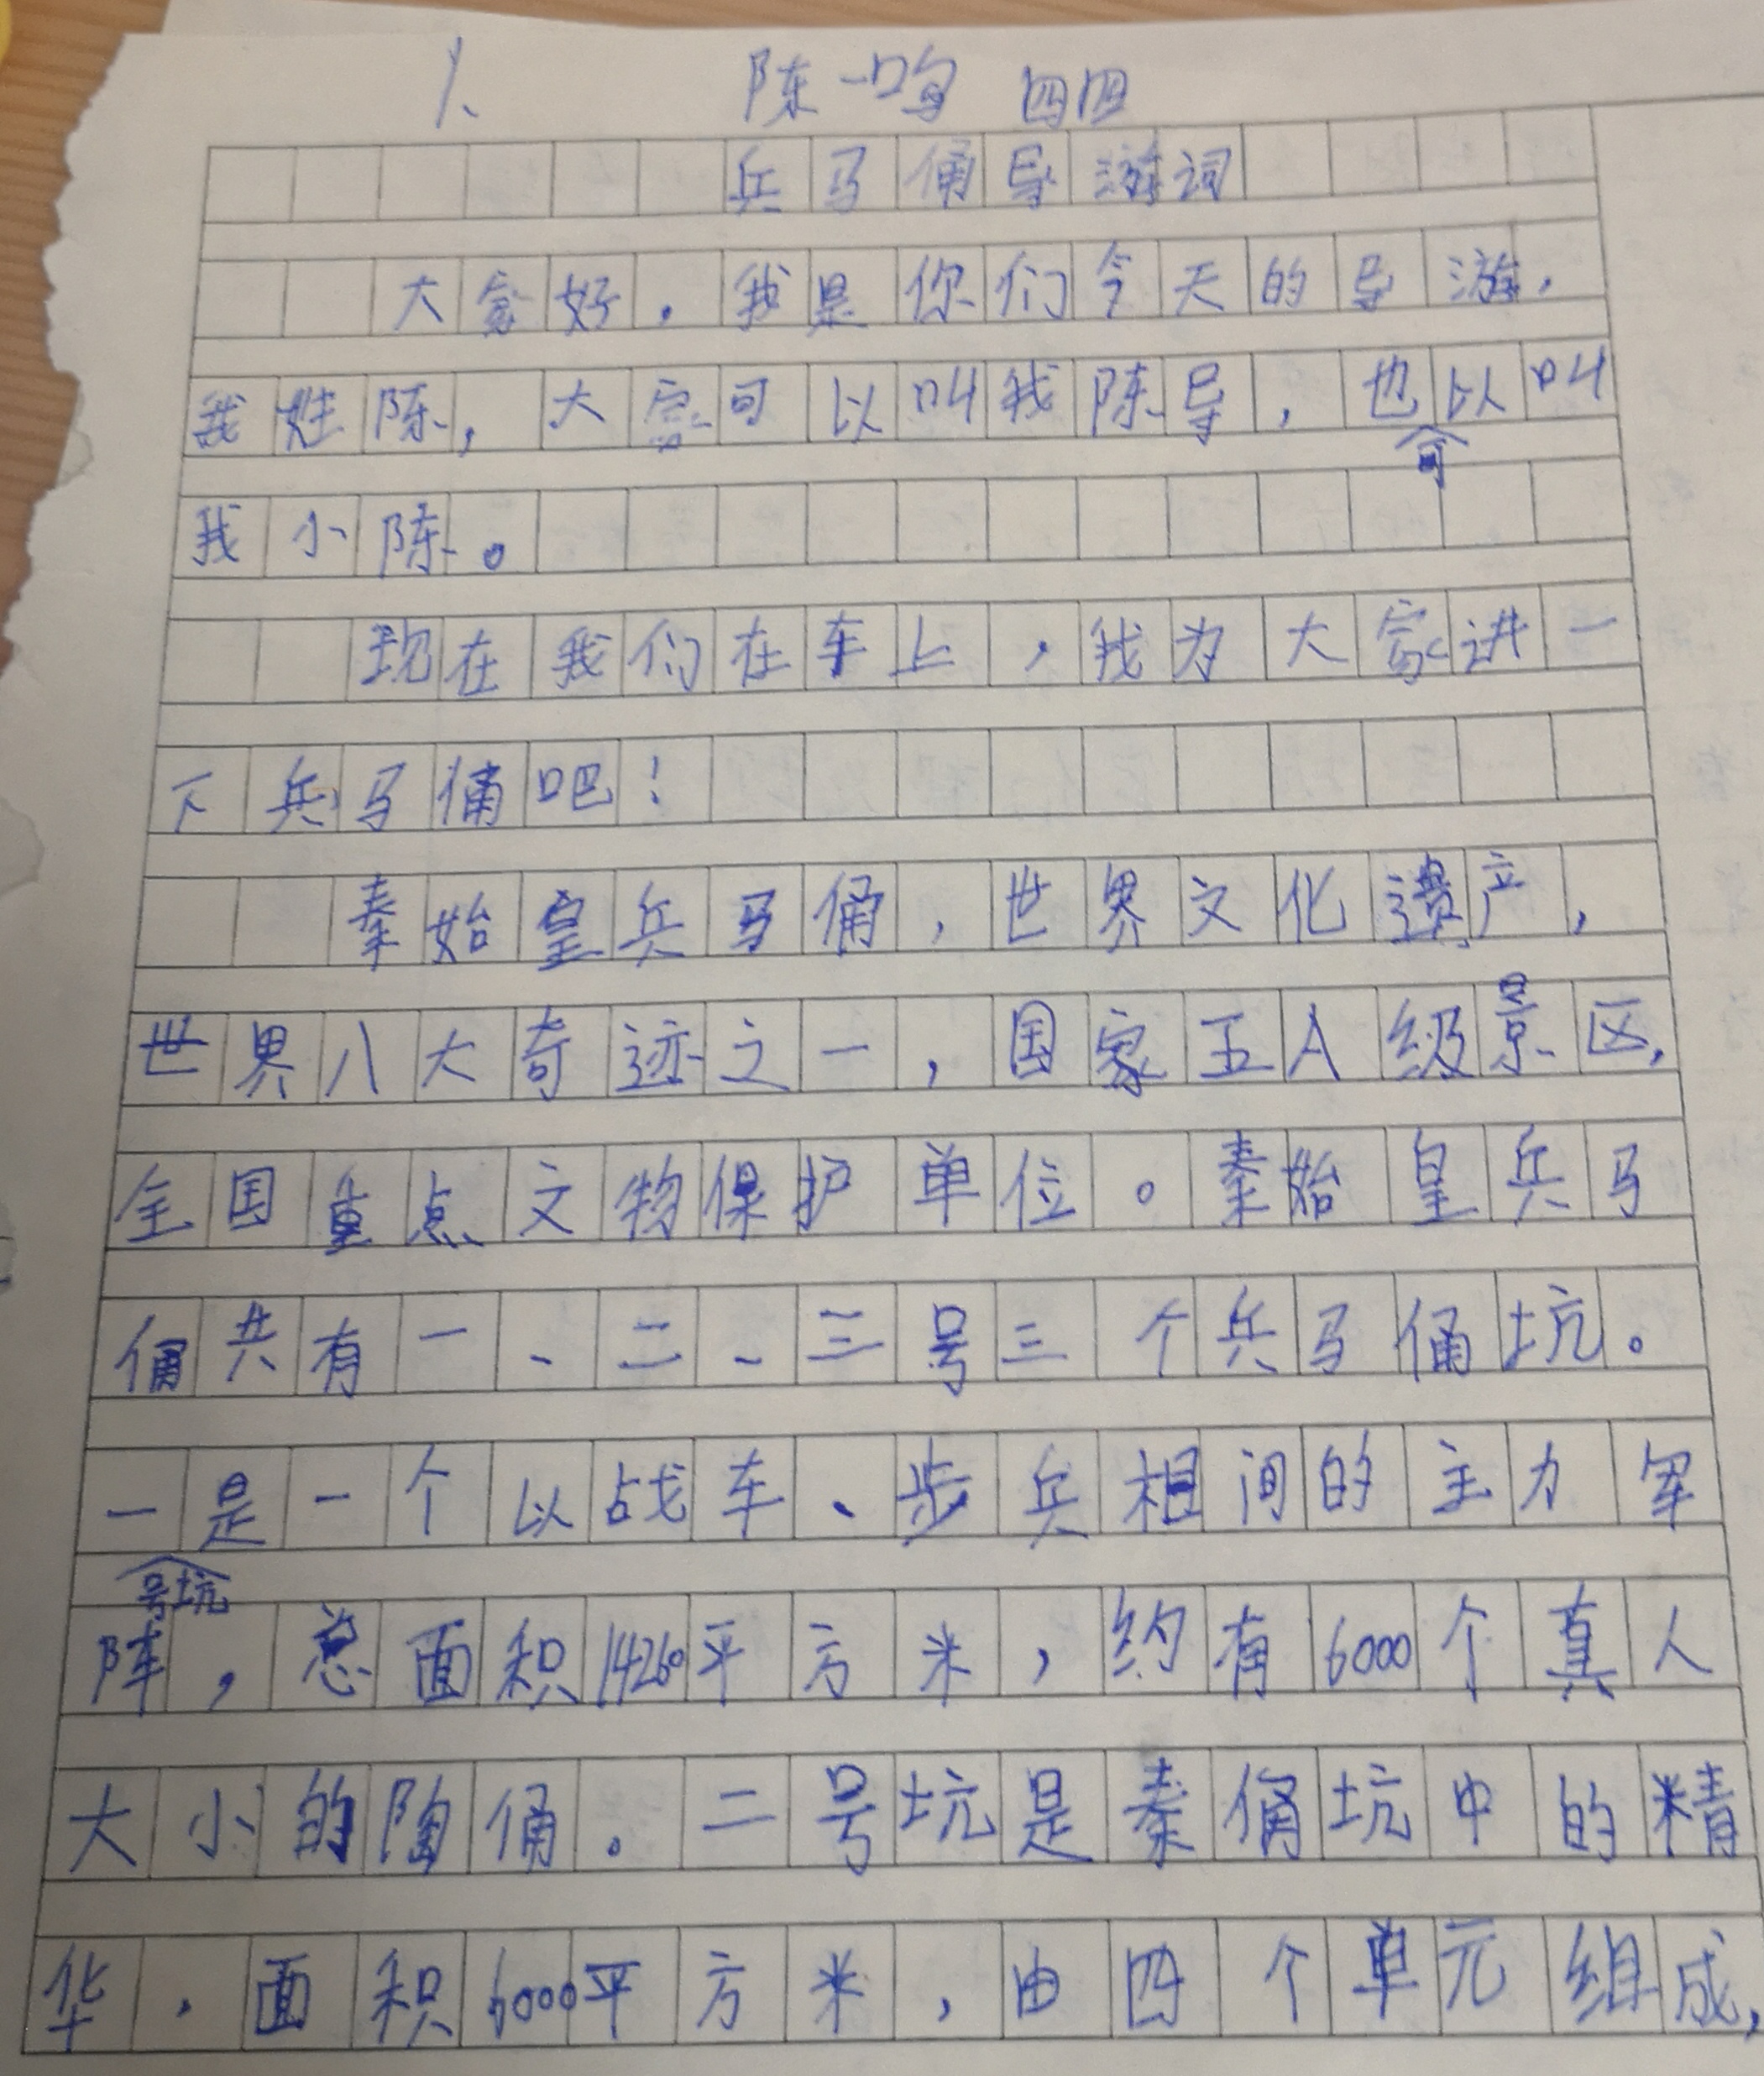 1、 陈一鸣 四四
兵马俑导游词
大家好，我是你们今天的导游，
我姓陈，大家可以叫我陈导，也可以叫
我小陈。
现在我们在车上，我为大家讲一
下兵马俑吧！
秦始皇兵马俑，世界文化遗产，
世界八大奇迹之一，国家五A级景区，
全国重点文物保护单位。秦始皇兵马
俑共有一、二、三号三个兵马俑坑。
一号坑是一个以战车、步兵相间的主力军
阵，总面积14260平方米，约有6000个真人
大小的陶俑。二号坑是秦俑坑中的精
华，面积6000平方米，由四个单元组成，